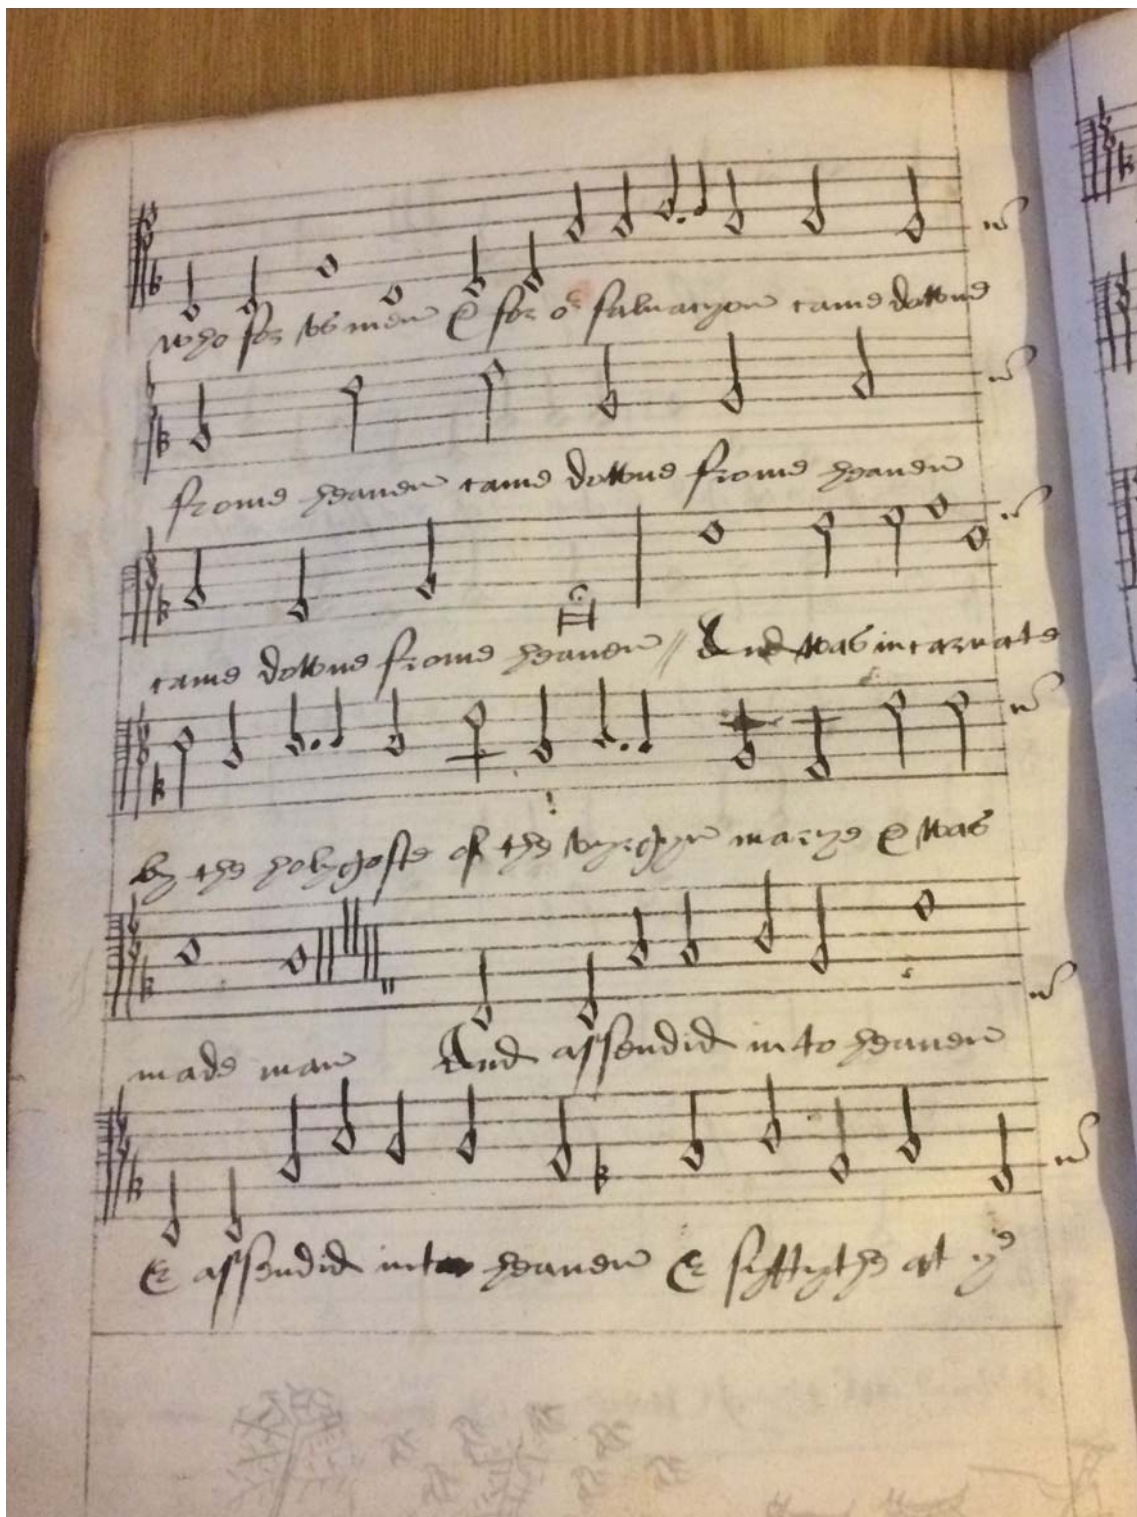 who for vs men & for oʳ saluacyon came downe
frome heauen came downe frome heauen
came downe frome heauen // And was incarnate
by the holy goste of the vyrgyn marye & was
made man And assendid into heauen
& assendid into heauen & syttythe at yᵉ